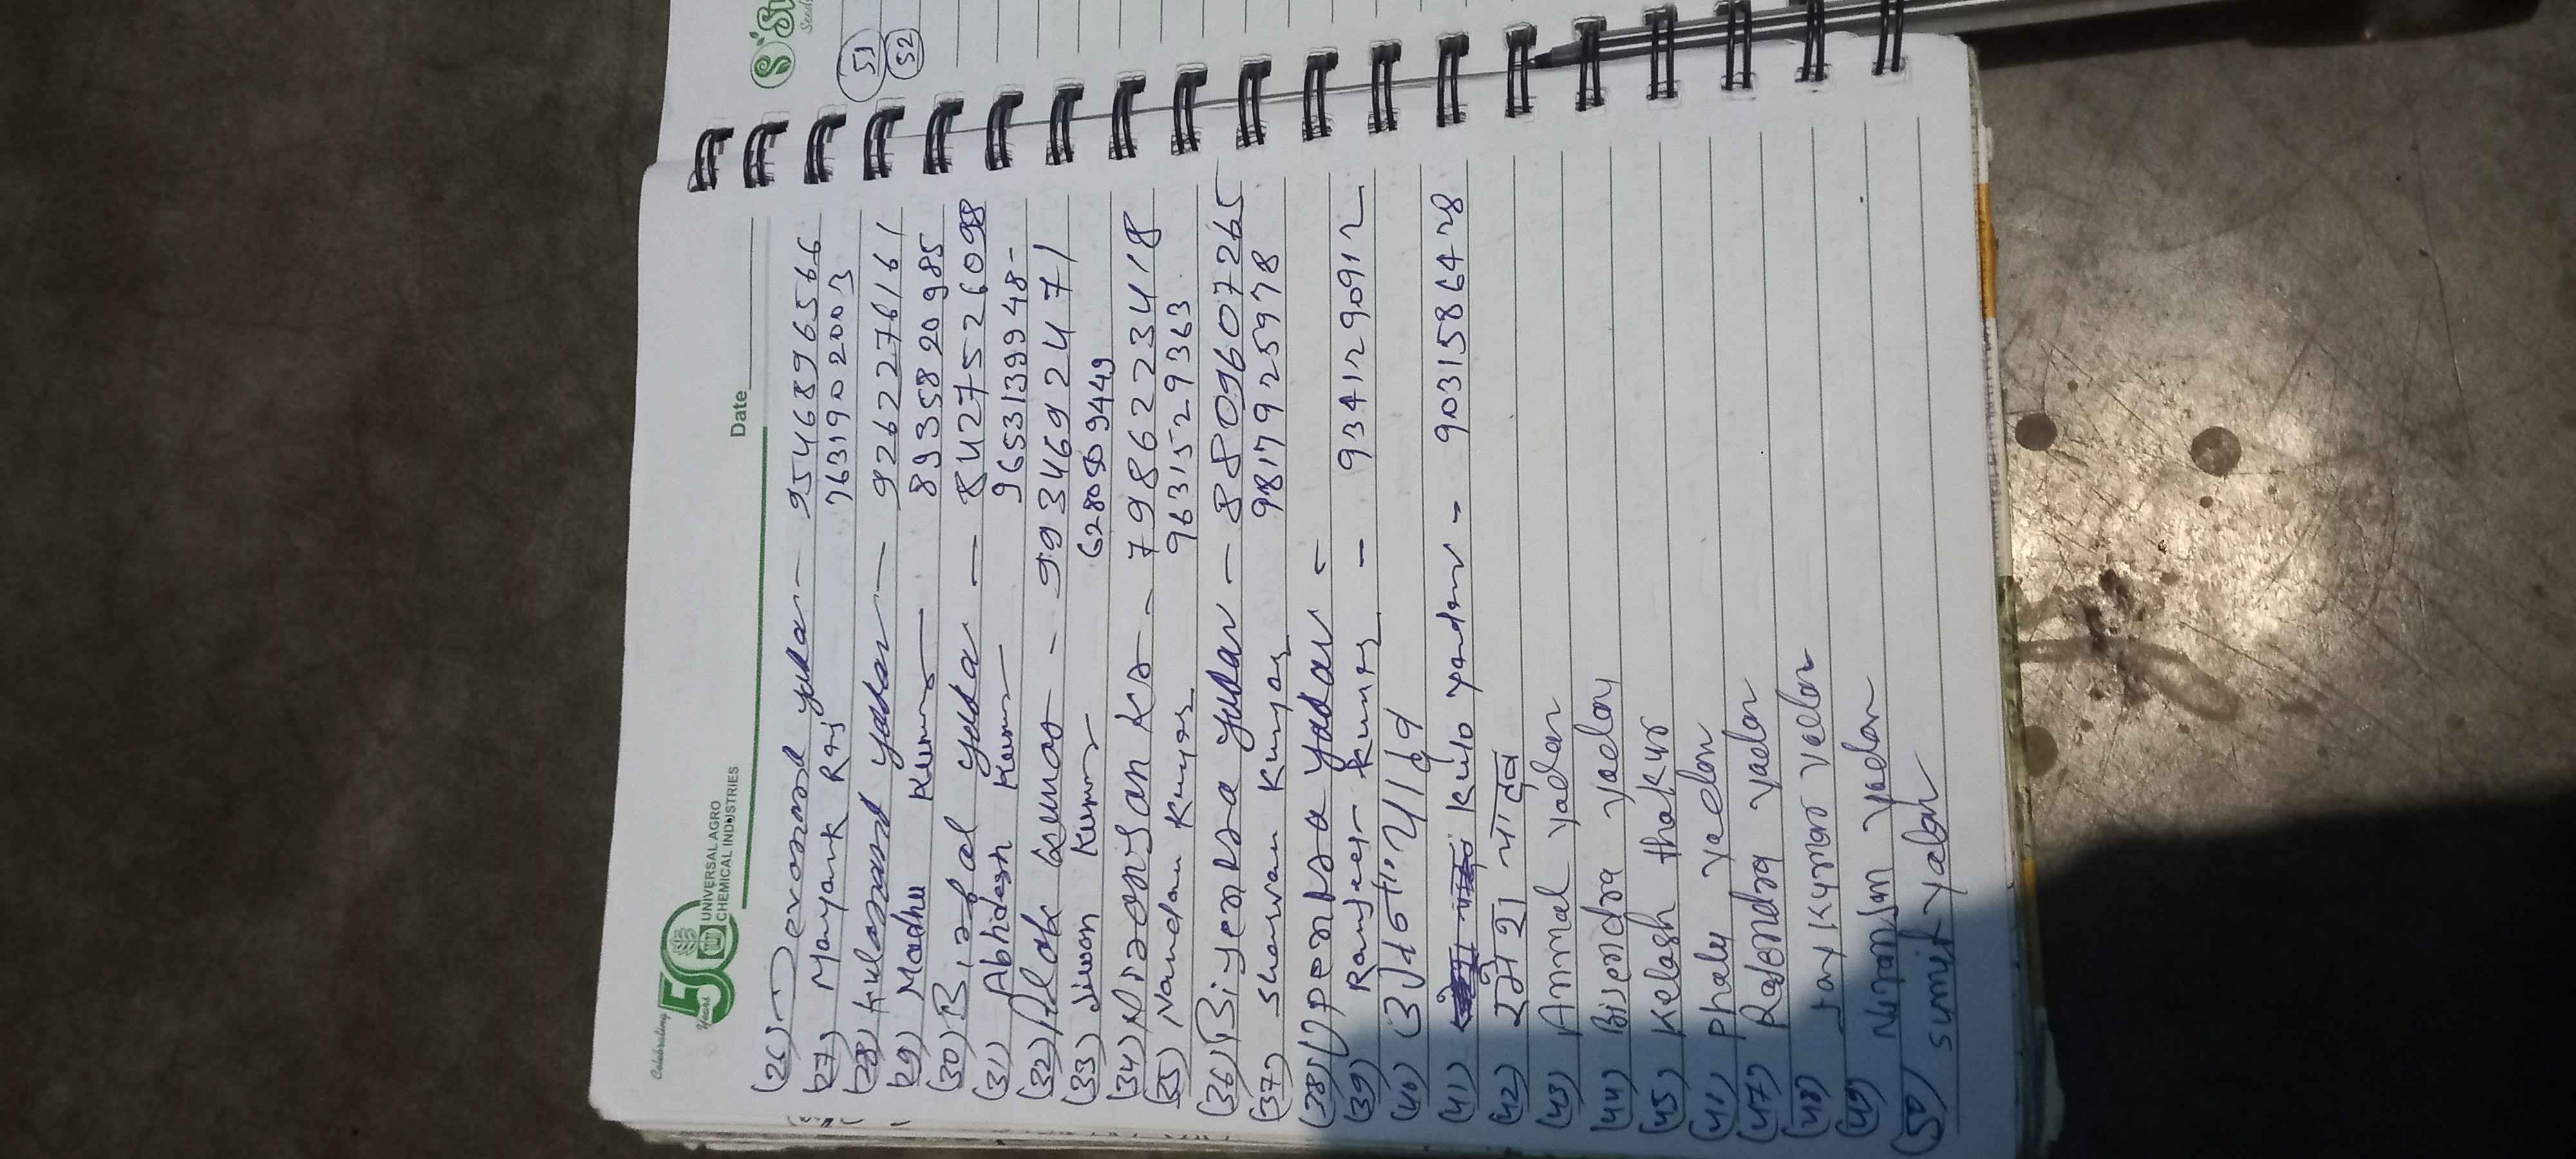 Celebrating
50 Years
UNIVERSAL AGRO
CHEMICAL INDUSTRIES
Date
(26) Devanand yada - 9546896566
(27) Mayank Raj 7631902003
(28) Kulanand yadav - 9262276161
(29) Madhu Kumar 8935820985
(30) yada - 8427526098
(31) Abhidesh Kumar 9653139948-
(32) Alok kumar - 9934692471
(33) Jiwan Kumar
(34) Niranjan Kr - 7986223418
(35) Nandan Kumar 9631529363
(36) Bijendra yadav - 8809607265
(37) Sharwan Kumar 9817925978
(38) Upendra yadav -
(39) Ranjeet Kumar - 9341290912
(40)
(41) yadav - 9031586428
(42) रमेश यादव
(43) Anmol yadav
(44) Bijendra yadav
(45) Kelash thakur
(46) Phalu yadav
(47) Rajendra yadav
(48) Jay Kumar yadav
(49) Niranjan yadav
(50) sumit yadav
(51)
(52)